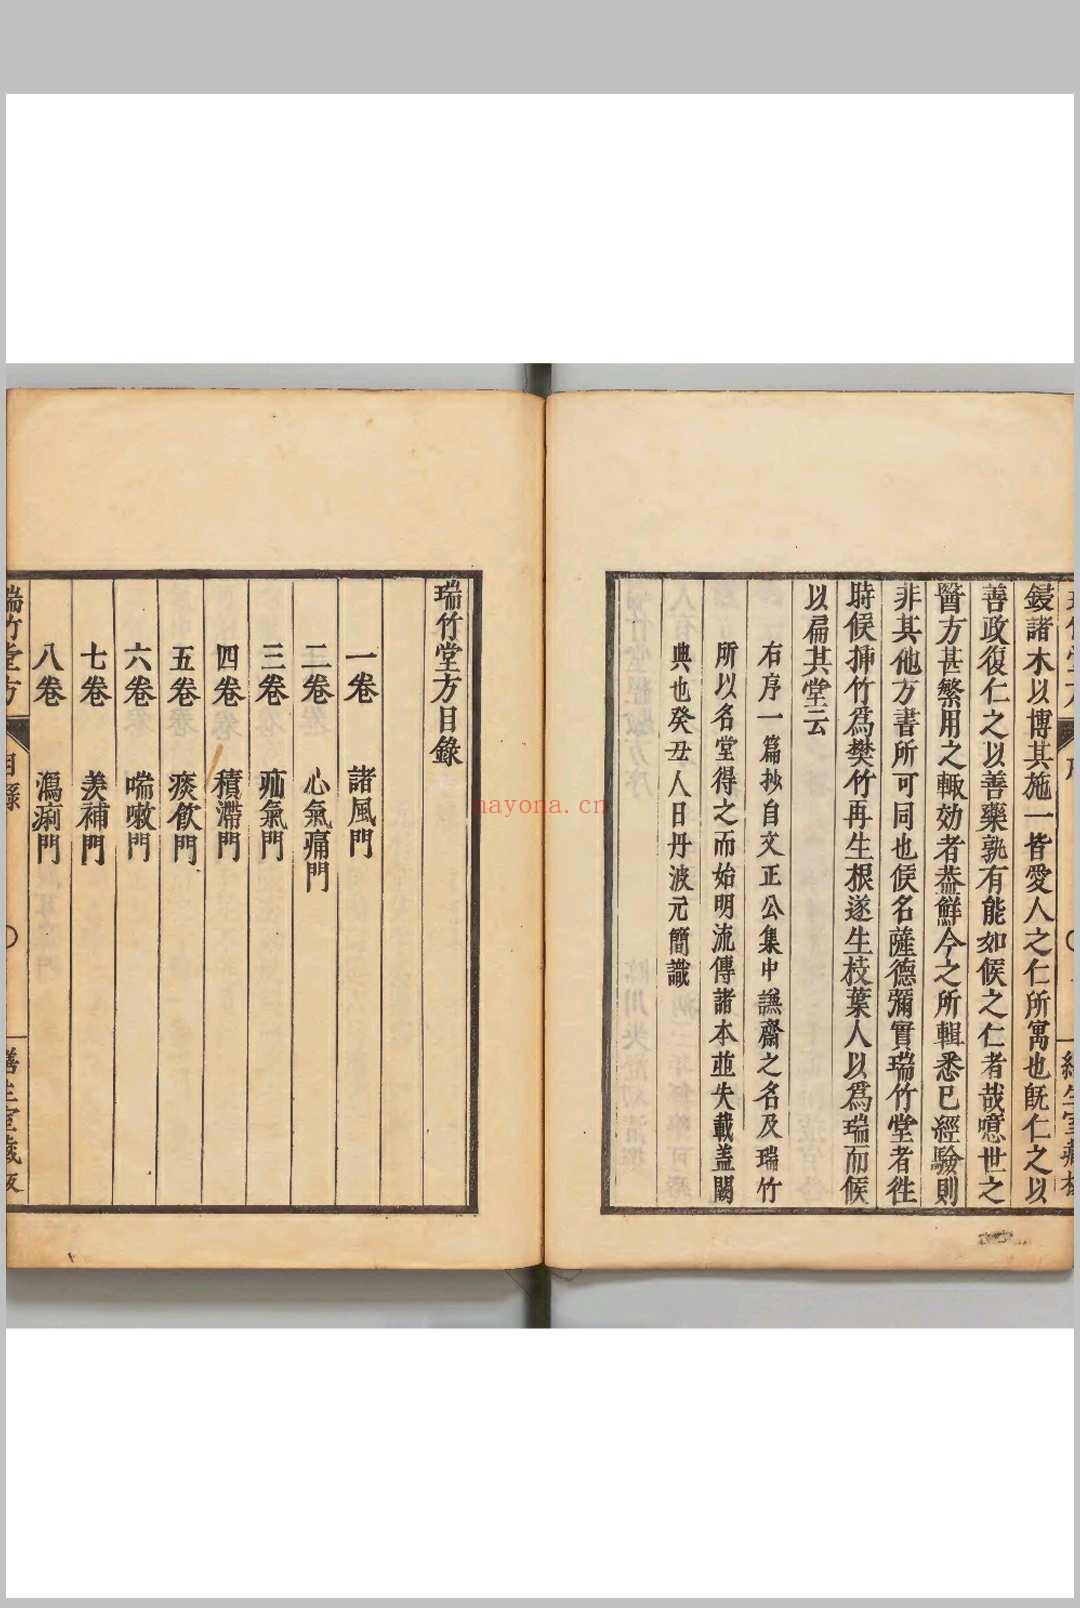 鋟諸木以博其施一皆愛人之仁所寓也旣仁之以
善政復仁之以善藥孰有能如候之仁者哉噫世之
醫方甚繁用之輙効者葢鮮今之所輯悉已經驗則
非其他方書所可同也候名薩德彌實瑞竹堂者徃
時候揷竹爲樊竹再生根遂生枝葉人以爲瑞而候
以扁其堂云
右序一篇抄自文正公集中謙齋之名及瑞竹
所以名堂得之而始明流傳諸本並失載盖闕
典也癸丑人日丹波元簡識
瑞竹堂方目錄
一卷 諸風門
二卷 心氣痛門
三卷 疝氣門
四卷 積滯門
五卷 痰飮門
六卷 喘嗽門
七卷 羨補門
八卷 瀉痢門
瑞竹堂方 目錄
nayona.cn